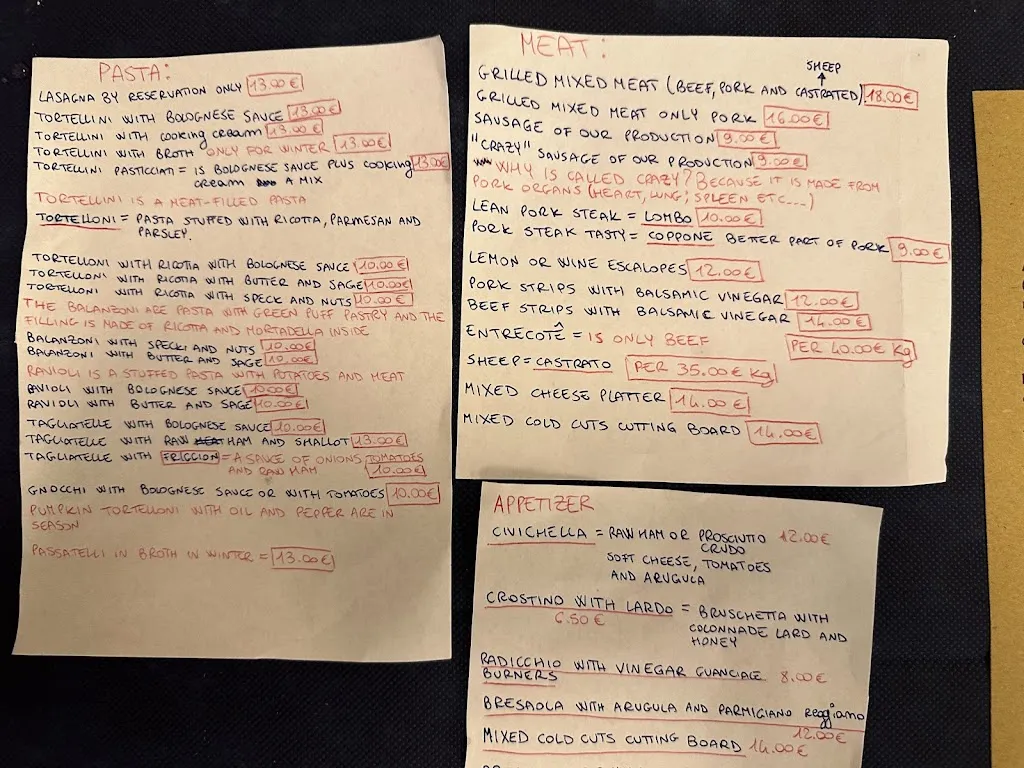 PASTA:
LASAGNA BY RESERVATION ONLY 13.00€
TORTELLINI WITH BOLOGNESE SAUCE 13.00€
TORTELLINI WITH COOKING CREAM 13.00€
TORTELLINI WITH BROTH ONLY FOR WINTER 13.00€
TORTELLINI PASTICCIATI = IS BOLOGNESE SAUCE PLUS COOKING 13.00€
CREAM A MIX
TORTELLINI IS A MEAT-FILLED PASTA
TORTELLONI = PASTA STUFFED WITH RICOTTA, PARMESAN AND
PARSLEY.
TORTELLONI WITH RICOTTA WITH BOLOGNESE SAUCE 10.00€
TORTELLONI WITH RICOTTA WITH BUTTER AND SAGE 10.00€
TORTELLONI WITH RICOTTA WITH SPECK AND NUTS 10.00€
THE BALANZONI ARE PASTA WITH GREEN PUFF PASTRY AND THE
FILLING IS MADE OF RICOTTA AND MORTADELLA INSIDE
BALANZONI WITH SPECK AND NUTS 10.00€
BALANZONI WITH BUTTER AND SAGE 10.00€
RAVIOLI IS A STUFFED PASTA WITH POTATOES AND MEAT
RAVIOLI WITH BOLOGNESE SAUCE 10.00€
RAVIOLI WITH BUTTER AND SAGE 10.00€
TAGLIATELLE WITH BOLOGNESE SAUCE 10.00€
TAGLIATELLE WITH RAW MEAT HAM AND SHALLOT 13.00€
TAGLIATELLE WITH FRICCION = A SAUCE OF ONIONS TOMATOES
AND RAW HAM 10.00€
GNOCCHI WITH BOLOGNESE SAUCE OR WITH TOMATOES 10.00€
PUMPKIN TORTELLONI WITH OIL AND PEPPER ARE IN
SEASON
PASSATELLI IN BROTH IN WINTER = 13.00€
MEAT:
SHEEP
GRILLED MIXED MEAT (BEEF, PORK AND CASTRATED) 18.00€
GRILLED MIXED MEAT ONLY PORK 16.00€
SAUSAGE OF OUR PRODUCTION 9.00€
"CRAZY" SAUSAGE OF OUR PRODUCTION 9.00€
WHY IS CALLED CRAZY? BECAUSE IT IS MADE FROM
PORK ORGANS (HEART, LUNG, SPLEEN ETC....)
LEAN PORK STEAK = LOMBO 10.00€
PORK STEAK TASTY = COPPONE BETTER PART OF PORK 9.00€
LEMON OR WINE ESCALOPES 12.00€
PORK STRIPS WITH BALSAMIC VINEGAR 12.00€
BEEF STRIPS WITH BALSAMIC VINEGAR 14.00€
ENTRECOTÊ = IS ONLY BEEF PER 40.00€ Kg
SHEEP = CASTRATO PER 35.00€ Kg
MIXED CHEESE PLATTER 14.00€
MIXED COLD CUTS CUTTING BOARD 14.00€
APPETIZER
CIVICHELLA = RAW HAM OR PROSCIUTTO 12.00€
CRUDO
SOFT CHEESE, TOMATOES
AND ARUGULA
CROSTINO WITH LARDO = BRUSCHETTA WITH
6.50€ COLONNADE LARD AND
HONEY
RADICCHIO WITH VINEGAR GUANCIALE 8.00€
BURNERS
BRESAOLA WITH ARUGULA AND PARMIGIANO Reggiano
12.00€
MIXED COLD CUTS CUTTING BOARD 14.00€